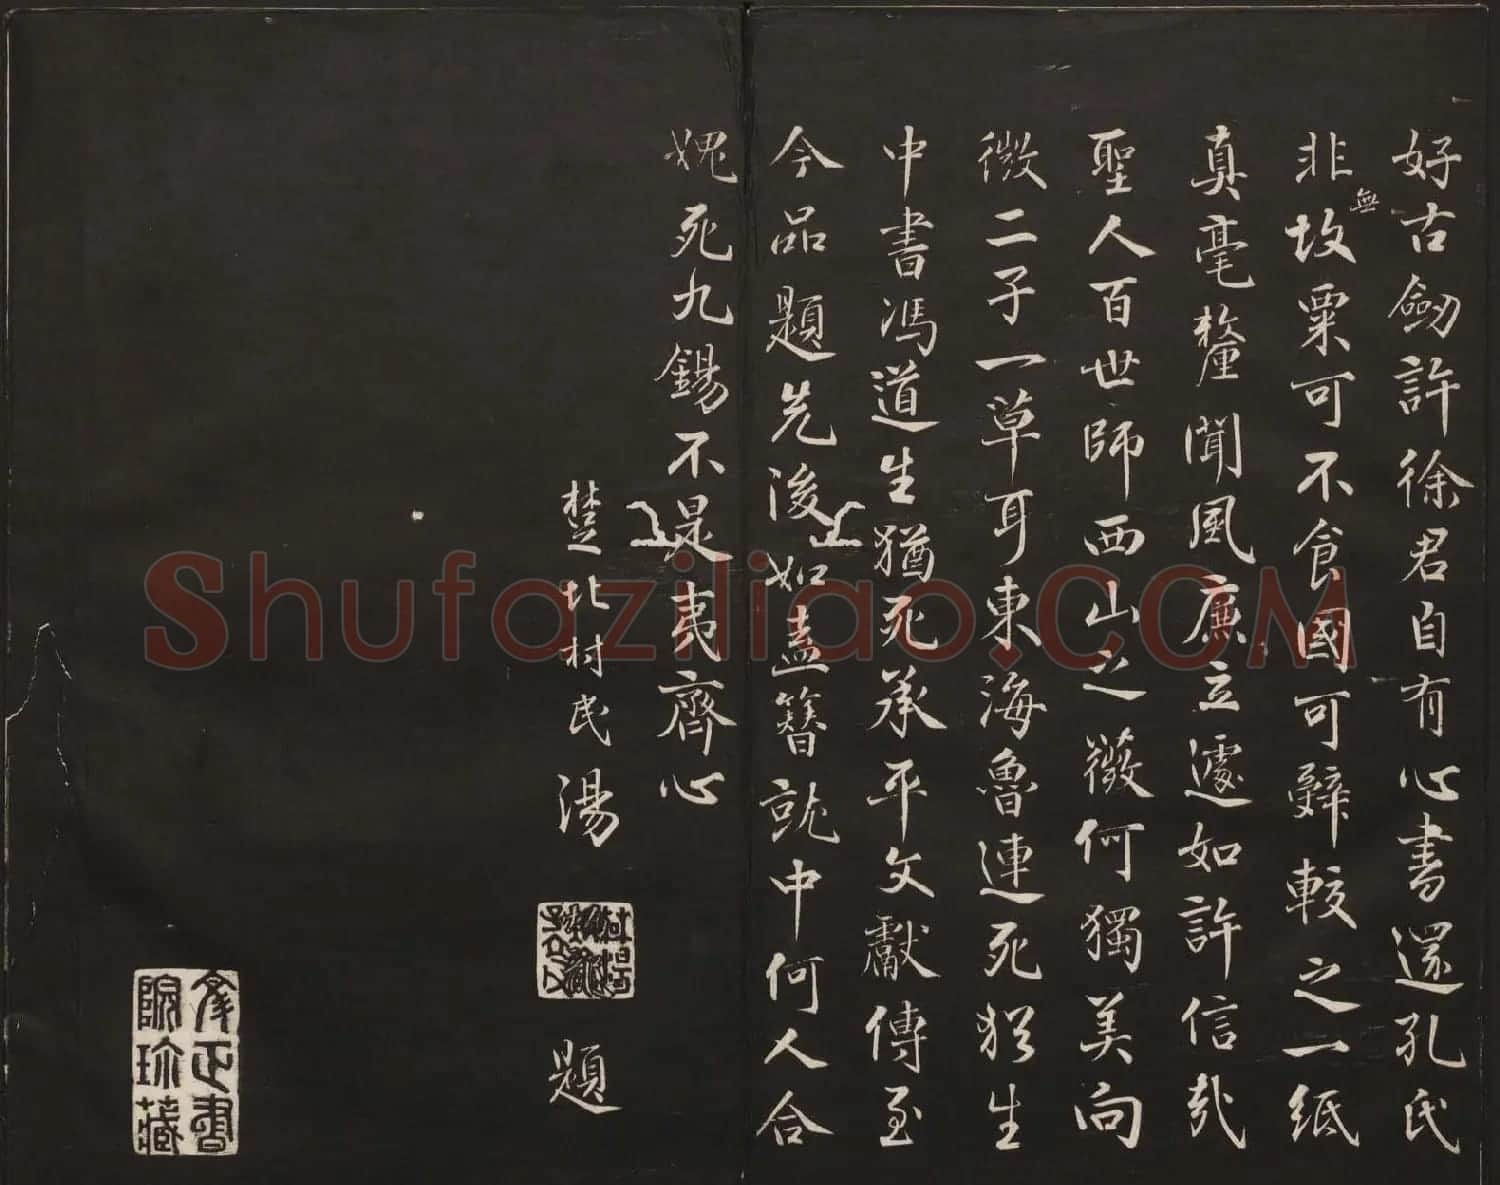 好古劒許徐君自有心書還孔氏
非故粟可不食國可辭較之一紙
無
真毫釐聞風廉立遽如許信哉
聖人百世師西山之薇何獨美向
微二子一草耳東海魯連死猶生
中書馮道生猶死承平文獻傳至
今品題先後如盍簪就中何人合
媿死九錫不是夷齊心
楚北村民湯
題
書正
院珍藏
Shufaziliao.COM